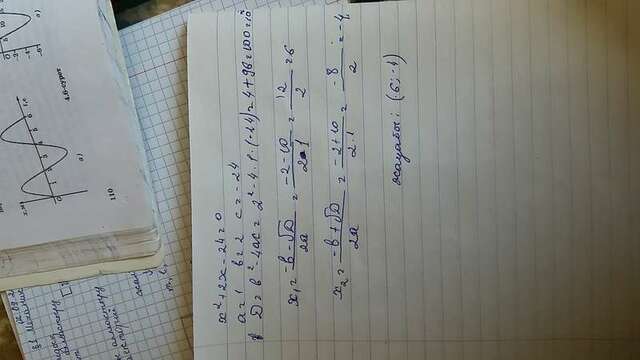 x, м
0 1 2 3 4 5 6 t, с
а)
4.6-сурет
110
-2
-4
-6
5 10
x² + 2x - 24 = 0
a = 1 b = 2 c = -24
D = b² - 4ac = 2² - 4 · 1 · (-24) = 4 + 96 = 100 = 10²
x₁ = (-b - √D)/2a = (-2 - 10)/(2·1) = 12/2 = 6
x₂ = (-b + √D)/2a = (-2 + 10)/(2·1) = -8/2 = -4
жауабы: (6; -4)